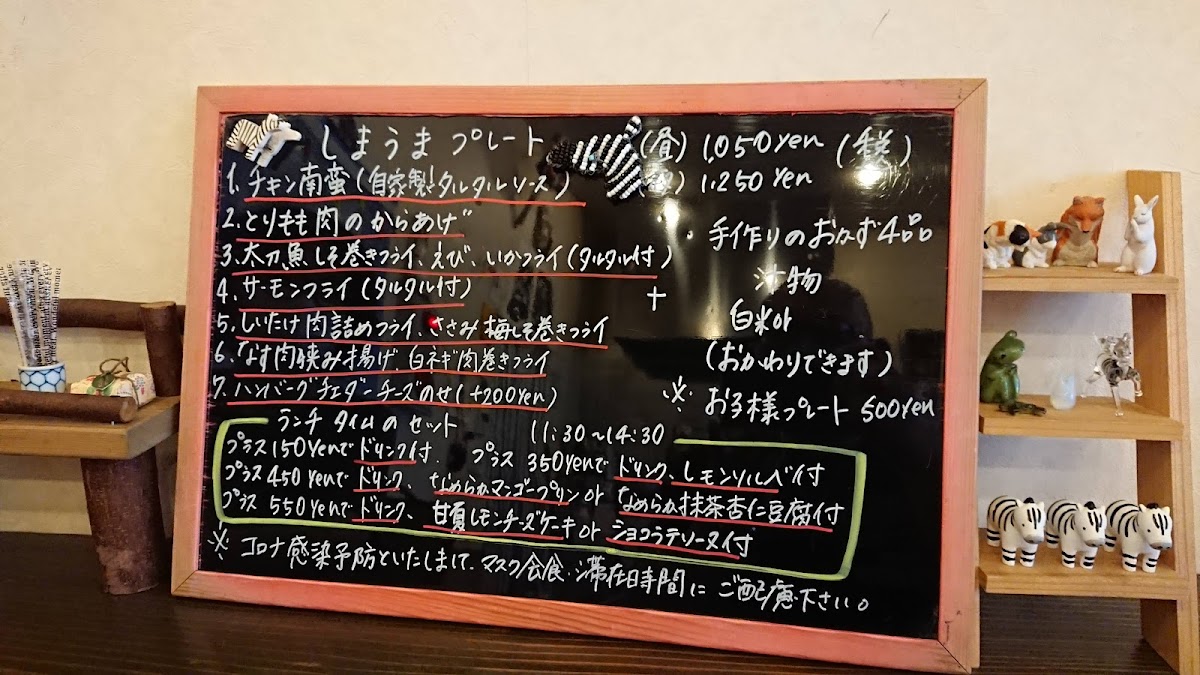 しまうま プレート
(昼) 1,050yen (税)
1,250yen
1. チキン南蛮(自家製タルタルソース)
2. とりもも肉のからあげ
3. 太刀魚しそ巻きフライ、えび、いかフライ(タルタル付)
4. サーモンフライ(タルタル付)
5. しいたけ肉詰めフライ、ささみ梅しそ巻きフライ
6. なす肉挟み揚げ、白ネギ肉巻きフライ
7. ハンバーグチェダーチーズのせ(+200yen)
+
手作りのおかず4品
汁物
白米or
(おかわりできます)
※ お子様プレート 500yen
ランチタイムのセット 11:30~14:30
プラス150yenでドリンク付. プラス 350yenで ドリンク、レモンソルベ付
プラス 450yenで ドリンク、なめらかマンゴープリン or なめらか抹茶杏仁豆腐付
プラス 550yenで ドリンク、甘夏レモンチーズケーキ or ショコラテリーヌ付
※ コロナ感染予防といたしまして、マスク会食・滞在時間に ご配慮下さい。